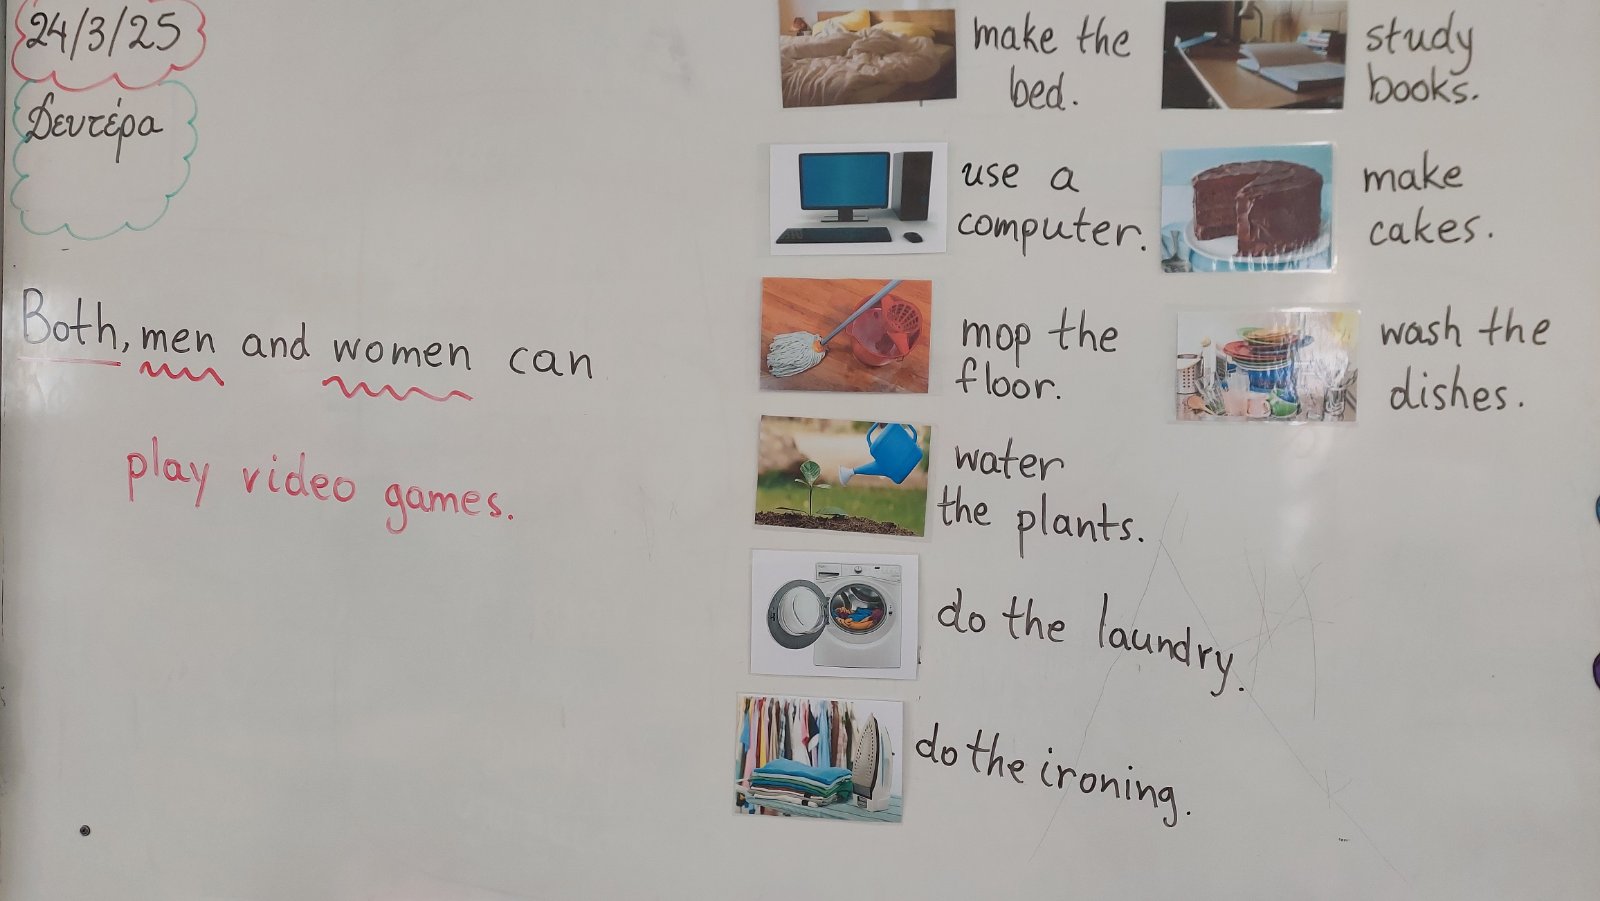 24/3/25
Δευτέρα
Both, men and women can
play video games.
make the
bed.
use a
computer.
mop the
floor.
water
the plants.
do the laundry.
do the ironing.
study
books.
make
cakes.
wash the
dishes.